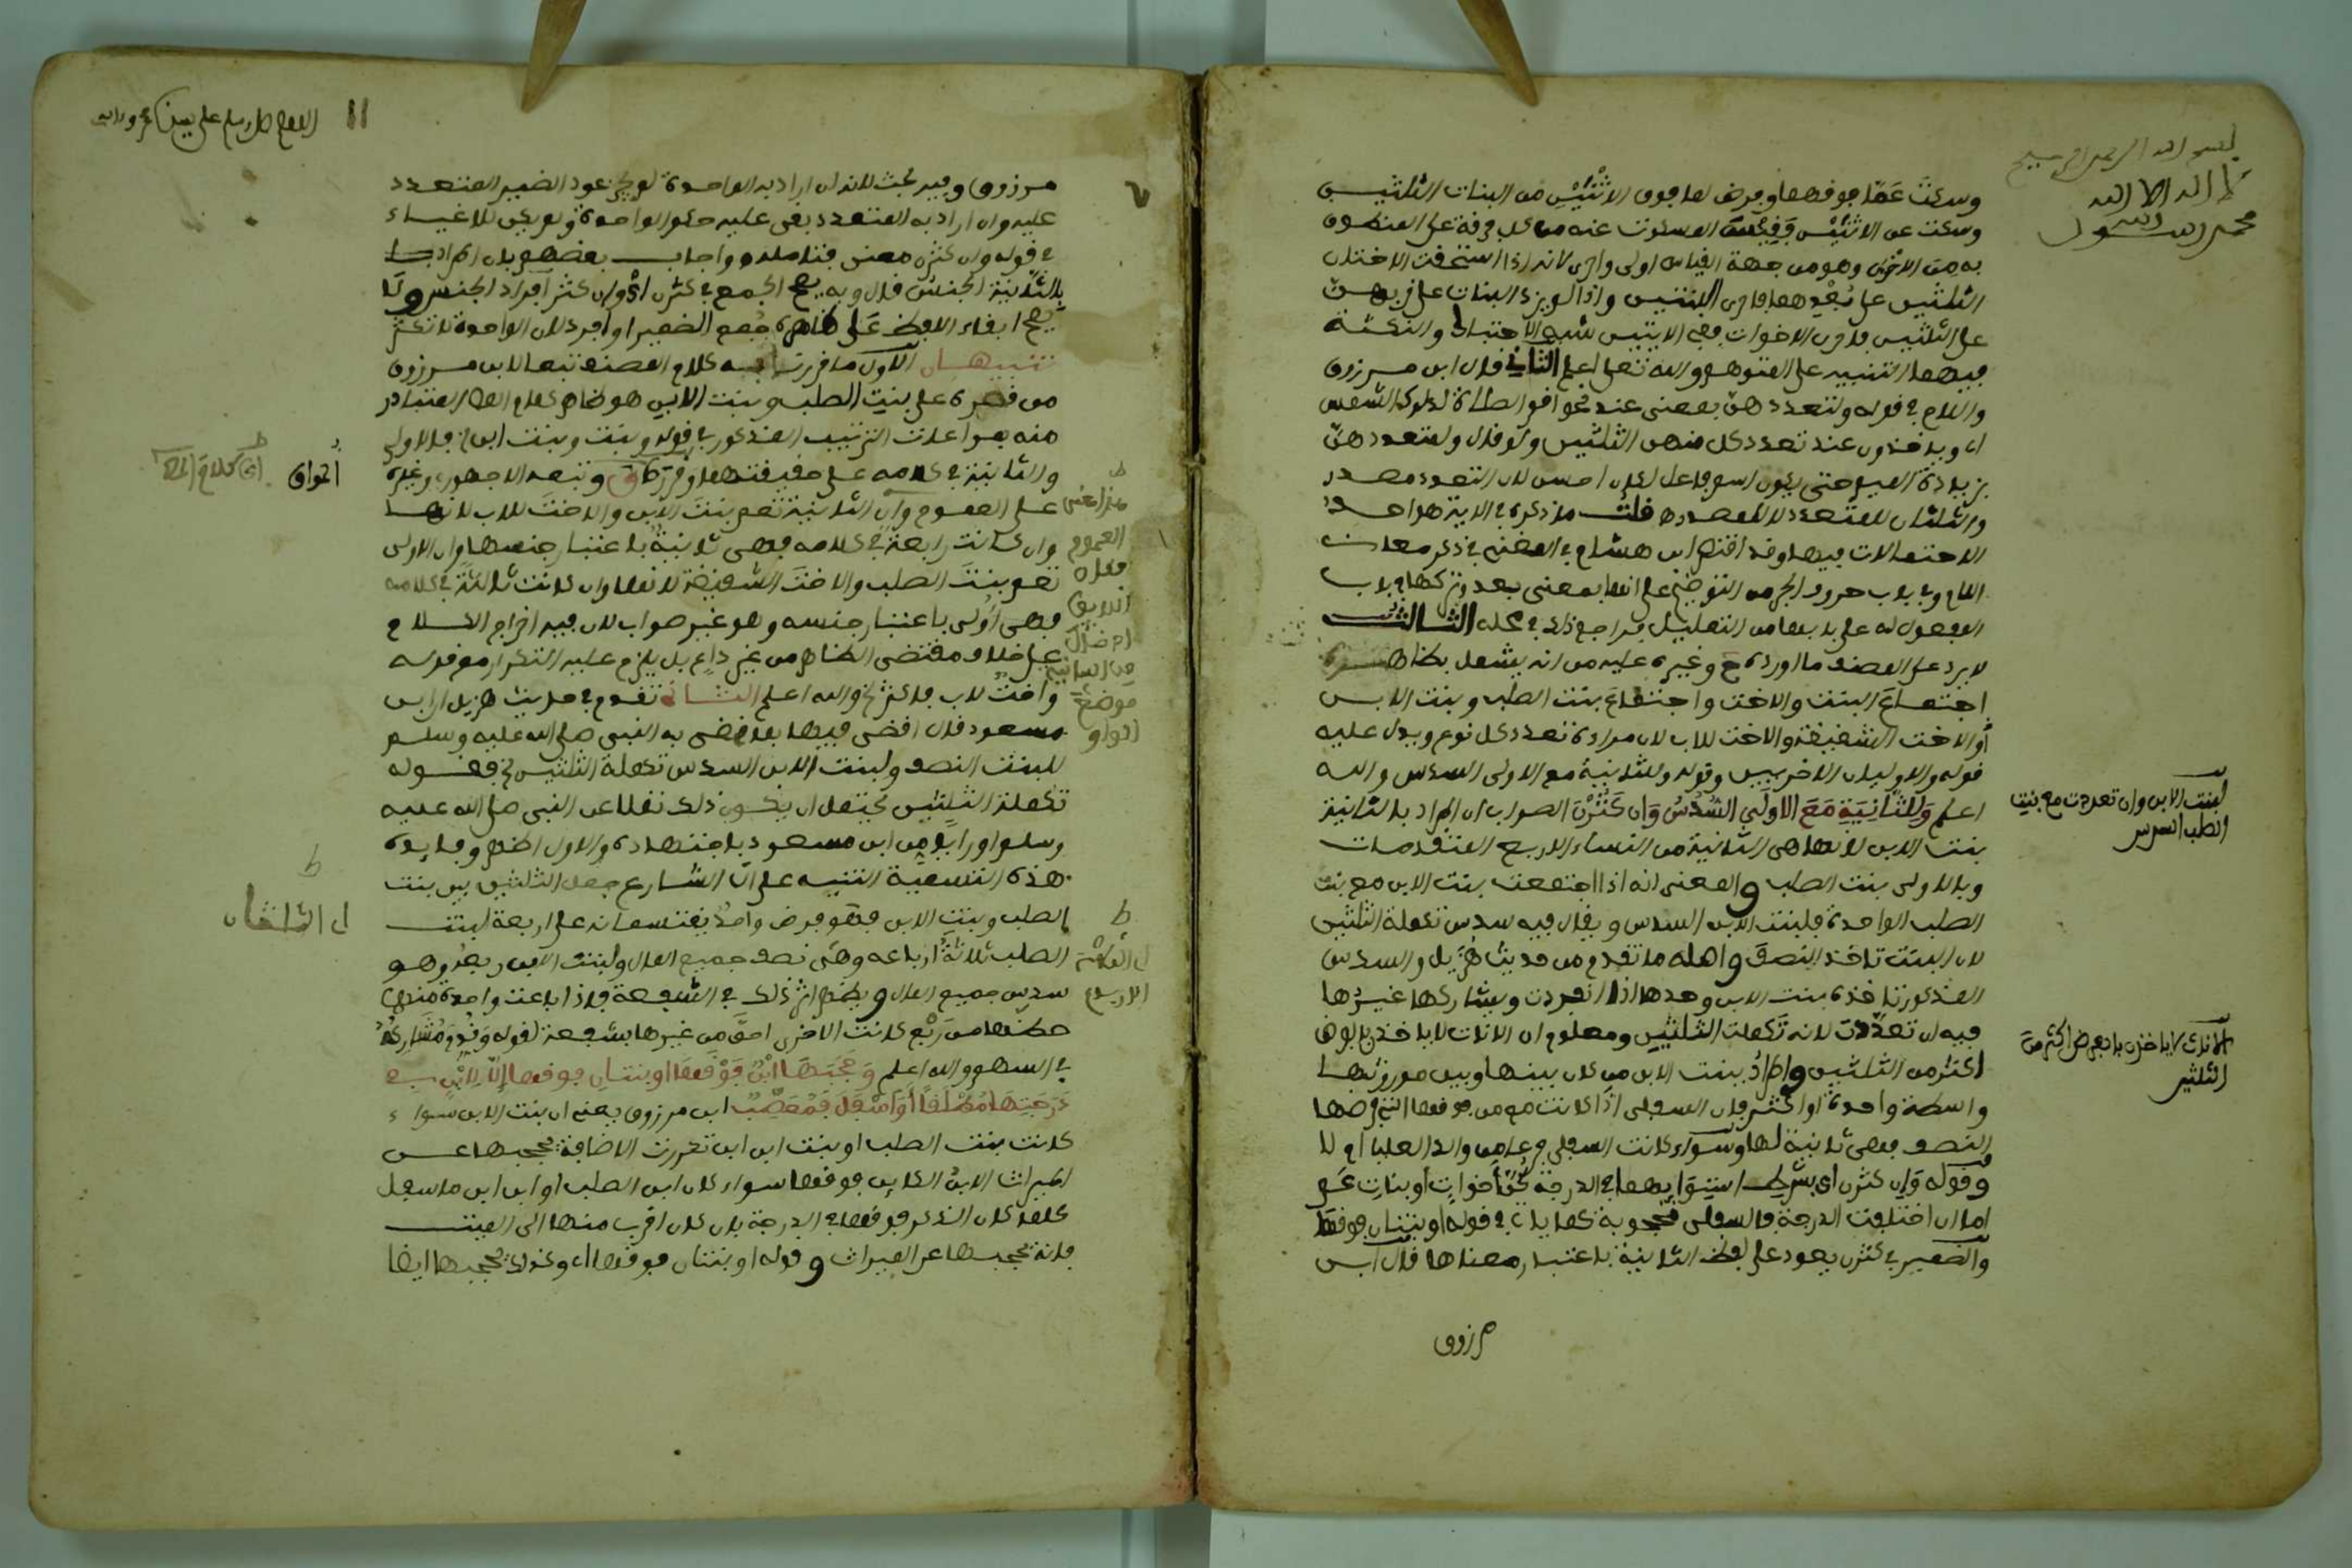 بسم الله الرحمن الرحيم
لا اله الا الله
محمد رسول الله
وسكت عما فوقهما وفرض لما فوق الاثنتين من البنات الثلثين
وسكت عن الاثنتين المسكوت عنه من كل على المنطوق
به من الاخرى وهو من جهة القياس اولى واحرى لانه اذا استحقت الاختان
الثلثين على بعدهما فاحرى البنتين واذا لم يزد البنات على قربهن
على الثلثين فاحرى الاخوات ففي الايتين شبه الاحتباك والنكتة
فيهما التنبيه على المتوهم والله تعلى اعلم الثاني قال ابن مرزوق
واللام في قوله ولتعددهن بمعنى عند نحو اقم الصلاة لدلوك الشمس
اي وياخذون عند تعدد كل منهن الثلثين ولو قال ولمتعددهن
بزيادة الميم حتى يكون اسم فاعل لكان احسن لان التعدد مصدر
والثلثان للمتعدد لا للمصدر قلت ما ذكره في الاية هو احد
الاحتمالات فيها وقد اقتصر ابن هشام في المغني في ذكر معان
اللام وفي باب حروف الجر من التوضيح على انها بمعنى بعد وتركها في باب
المفعول له على بابها من التعليل فراجع ذلك في محله الثالث
لا يرد على المصنف ما اورده ح وغيره عليه من انه يشمل بظاهره
اجتماع البنت والاخت واجتماع بنت الصلب وبنت الابن
او الاخت الشقيقة والاخت للاب لان مراده تعدد كل نوع ويدل عليه
قوله والاوليان الاخريين وقوله وللثانية مع الاولى السدس والله
اعلم وَلِلثَّانِيَةِ مَعَ الاولَى السُّدُسُ وَإن كَثُرْنَ الصواب ان المراد بالثانية
بنت الابن لانها هي الثانية من النساء الاربع المتقدمات
وبالاولى بنت الصلب والمعنى انه اذا اجتمعت بنت الابن مع بنت
الصلب الواحدة فلبنت الابن السدس ويقال فيه سدس تكملة الثلثين
لان البنت تاخذ النصف واصله ما تقدم من حديث هزيل والسدس
المذكور تاخذه بنت الابن وحدها اذا انفردت ويشاركها غيرها
فيه ان تعددت لانه تكملت الثلثين ومعلوم ان الاناث لا ياخذن بالفرض
اكثر من الثلثين والمراد بنت الابن من كان بينها وبين موروثها
واسطة واحدة او اكثر فان السفلى اذا كانت مع من فوقها التي فرضها
النصف فهي ثانية لها وسواء كانت السفلى والد العليا ام لا
وقوله وان كثرن اي بشرط استوايهما في الدرجة كن اخوات او بنات عم
اما ان اختلفت الدرجة فالسفلى محجوبة كما ياتي في قوله او بنتان فوقها
والضمير في كثرن يعود على لفظ الثانية باعتبار معناها قال ابن
مرزوق
لبنت الابن وان تعددت مع بنت
الصلب السدس
لان الاناث لا ياخذن بالفرض اكثر من
الثلثين
١١
اللهم صل وسلم على
مرزوق وفيه بحث لانه ان اراد به الواحدة لم يصح عود الضمير المتعدد
عليه وان اراد به المتعدد بقي عليه حكم الواحدة ولم يكن للاغياء
في قوله وان كثرن معنى فتامله واجاب بعضهم بان المراد
بالثانية الجنس قال وبه يصح الجمع في كثرن اي وان كثر افراد الجنس ولا
يصح ابقاء اللفظ على ظاهره جمع الضمير او افرد لان الواحدة لا تكثر
تنبيهان الاول ما قررت به كلام المصنف تبعا لابن مرزوق
من قصره على بنت الصلب وبنت الابن هو ظاهر كلام المص المتبادر
منه بمراعات الترتيب المذكور في قوله وبنت وبنت ابن فالاولى
والثانية في كلامه على حقيقتهما وقرر ق وتبعه الاجهوري وغيره
على العموم وان الثانية تعم بنت الابن والاخت للاب لانها
وان كانت رابعة في كلامه فهي ثانية باعتبار جنسها وان الاولى
تعم بنت الصلب والاخت الشقيقة لانها وان كانت ثالثة في كلامه
فهي اولى باعتبار جنسه وهو غير صواب لان فيه اخراج الكلام
على خلاف مقتضى الظاهر من غير داع بل يلزم عليه التكرار مع قوله
واخت لاب فاكثر الخ والله اعلم الثاني تقدم في حديث هزيل ان ابن
مسعود قال اقضي فيها بما قضى به النبي صلى الله عليه وسلم
للبنت النصف ولبنت الابن السدس تكملة الثلثين الخ فقوله
تكملة الثلثين يحتمل ان يكون ذلك نقلا عن النبي صلى الله عليه
وسلم او رايا من ابن مسعود باجتهاده والاول اظهر وفايدة
هذه التسمية التنبيه على ان الشارع جعل الثلثين بين بنت
الصلب وبنت الابن فهو فرض واحد يقتسمانه على اربعة لبنت
الصلب ثلاثة ارباعه وهي نصف جميع المال ولبنت الابن ربعه وهو
سدس جميع المال ويظهر اثر ذلك في الشفعة فاذا باعت واحدة منهما
حظها من ربع كانت الاخرى احق من غيرها بشفعة لقوله وَقُدِّمَ مُشَارِكُهُ
في السهم والله اعلم وَحَجَبَهَا ابْنٌ فَوْقَهَا او بنتان فوقها إلّا لِابْنٍ في
دَرَجَتِهَا مُطْلَقًا أَوْ أَسْفَلَ فَمُعَصِّبٌ ابن مرزوق يعني ان بنت الابن سواء
كانت بنت الصلب او بنت ابن ابن تكررت الاضافة يحجبها عن
الميراث الابن الكاين فوقها سواء كان ابن الصلب او ابن ابن ما سفل
كلما كان الذكر فوقها في الدرجة بان كان اقرب منها الى الميت
فانه يحجبها عن الميراث وقوله او بنتان فوقها اي وكذلك يحجبها ايضا
المواق
اي كلام المص
اي الثلثان
العموم
موضع